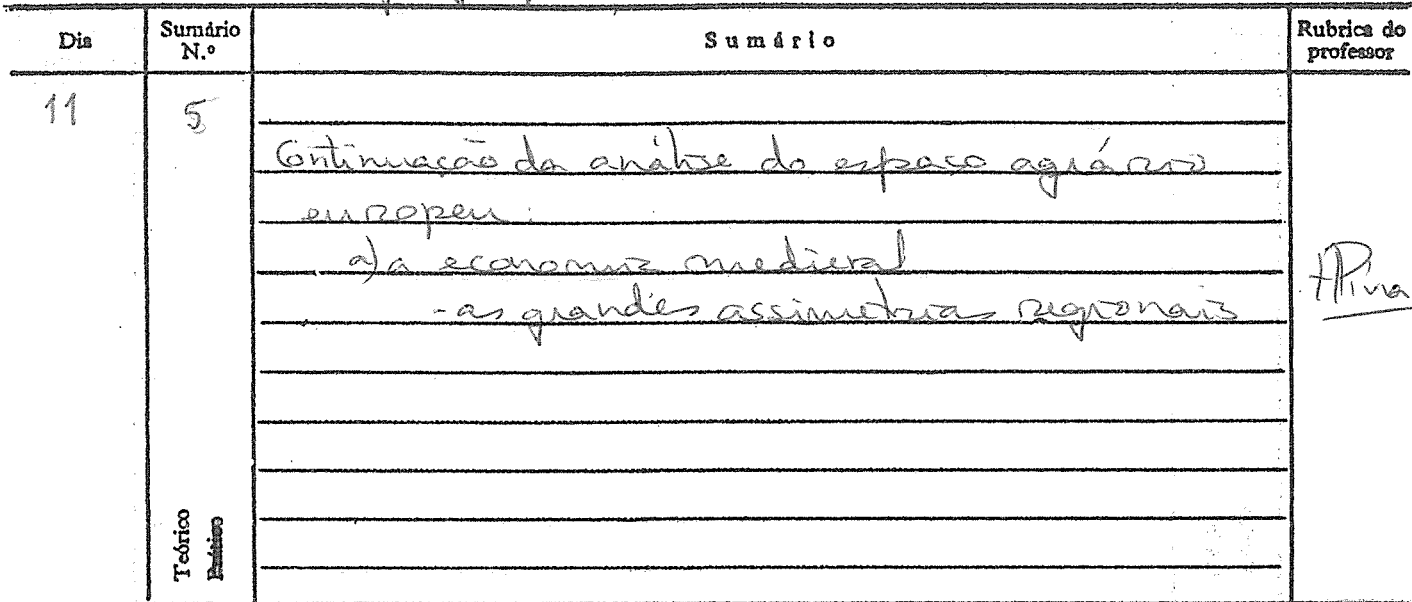 Dia
Sumário N.º
Sumário
Rubrica do professor
11
5
Continuação da análise do espaço agrário
europeu:
a) a economia medieval
- as grandes assimetrias regionais
Teórico